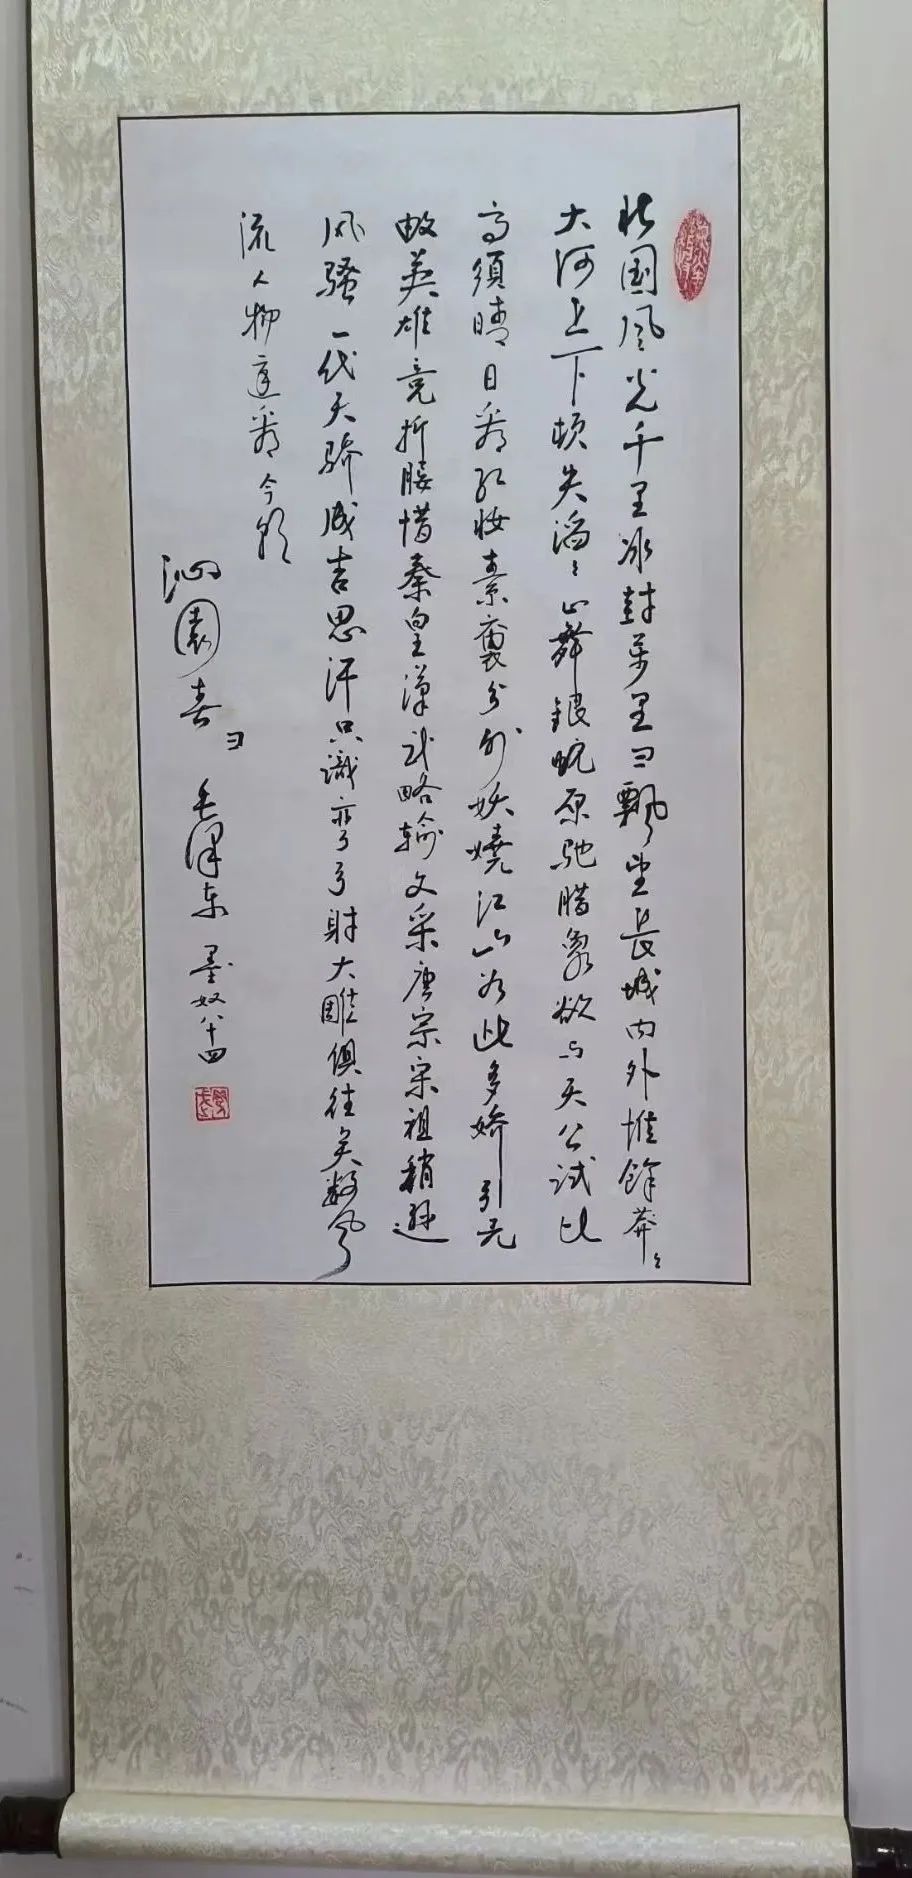 北国风光千里冰封万里雪飘望长城内外惟馀莽〻
大河上下顿失滔〻山舞银蛇原驰腊象欲与天公试比
高须晴日看红妆素裹分外妖娆江山如此多娇引无
数英雄竞折腰惜秦皇汉武略输文采唐宗宋祖稍逊
风骚一代天骄成吉思汗只识弯弓射大雕俱往矣数风
流人物还看今朝
沁园春雪 毛泽东 墨奴八十四